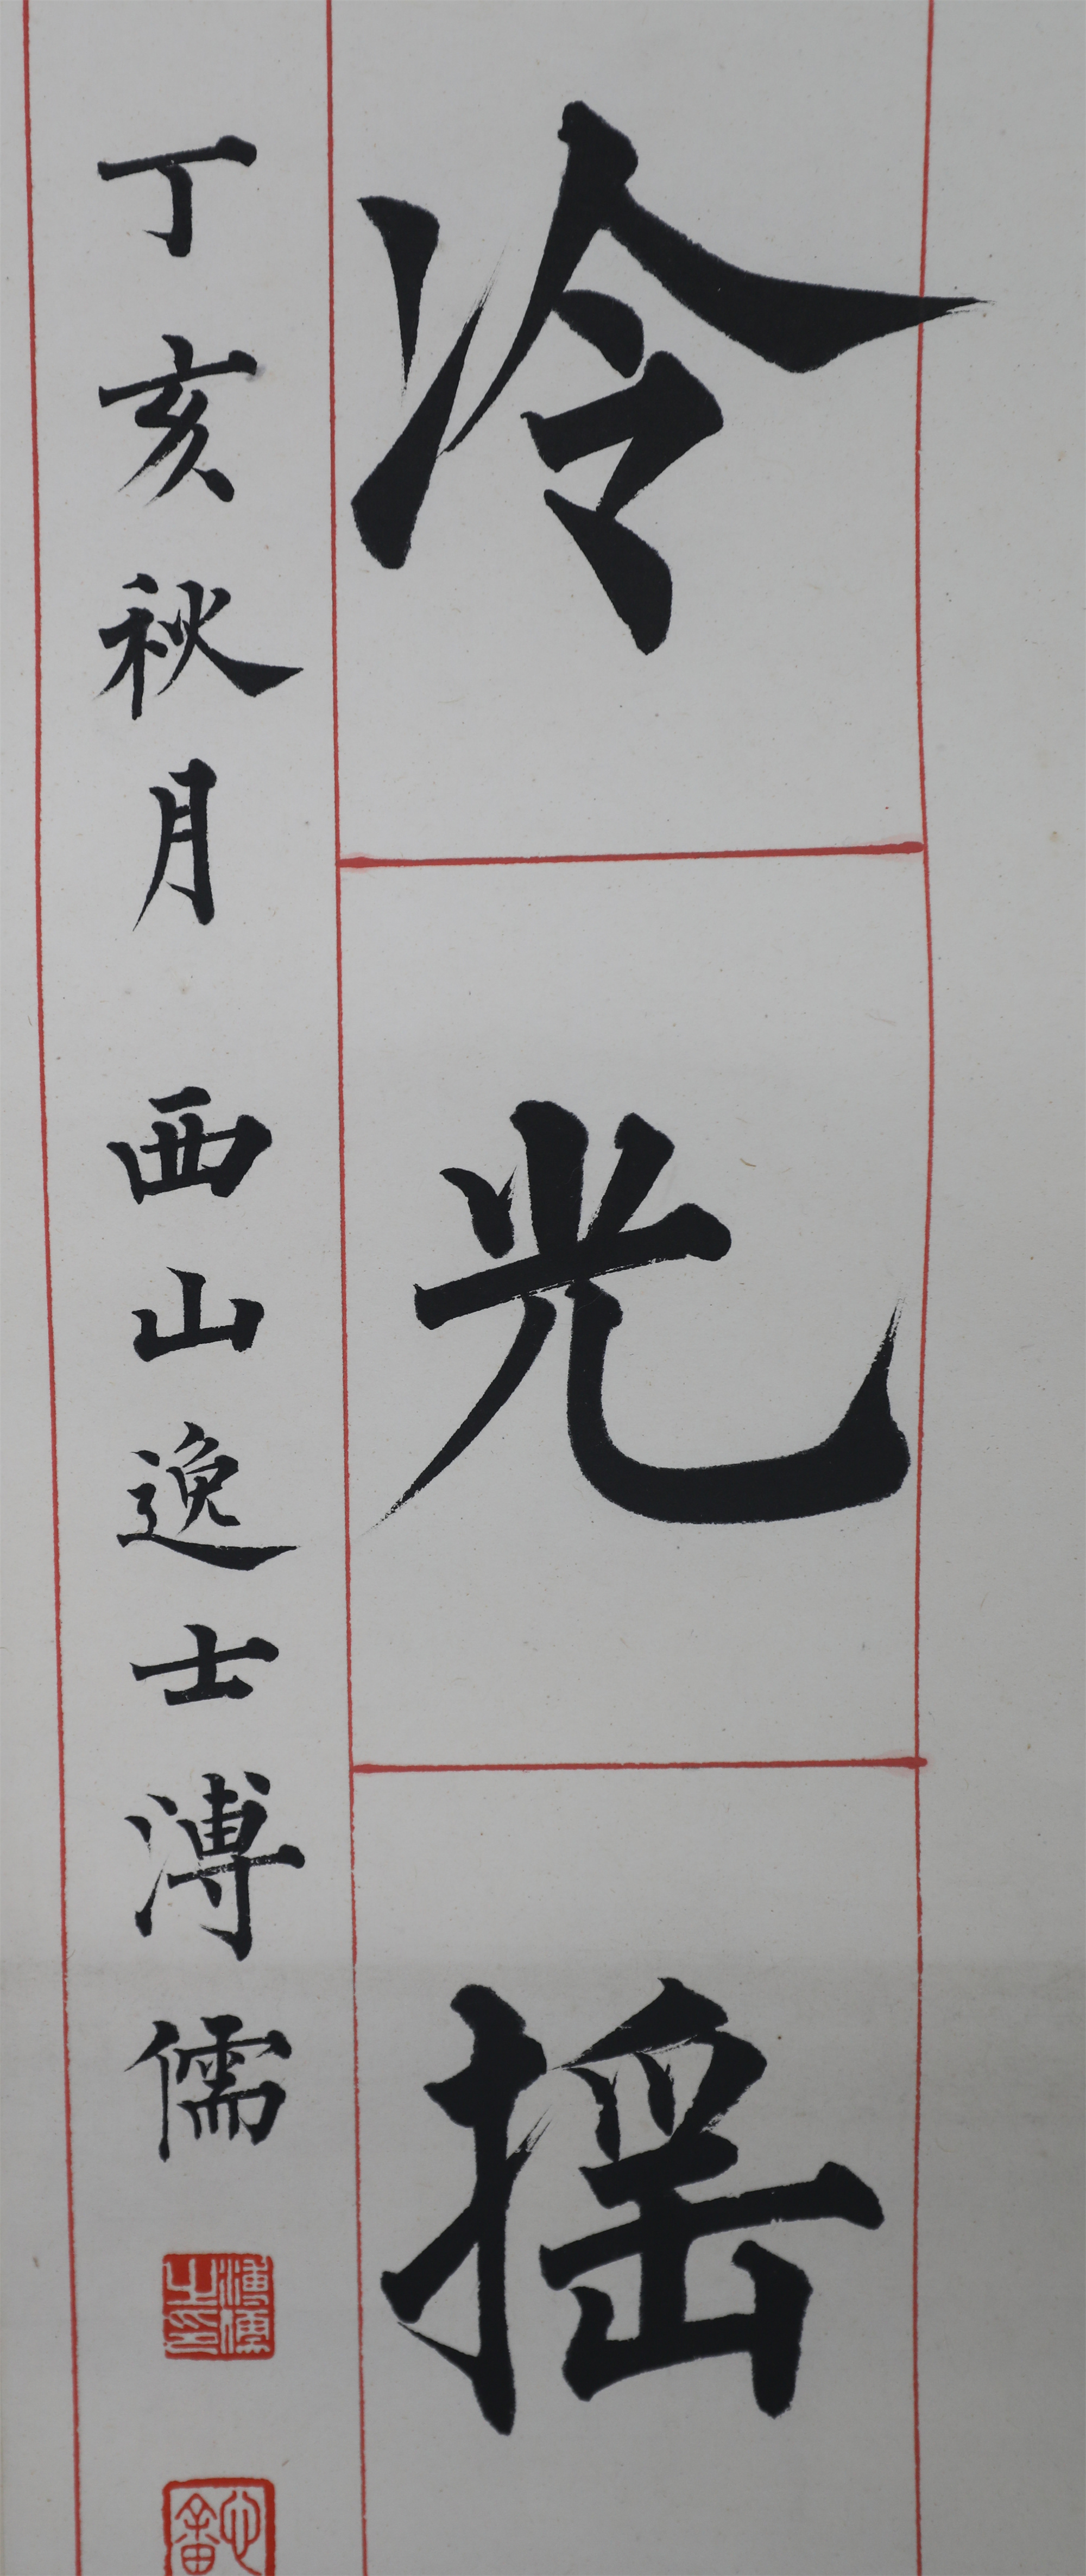 冷光摇
丁亥秋月 西山逸士溥儒
溥儒之印